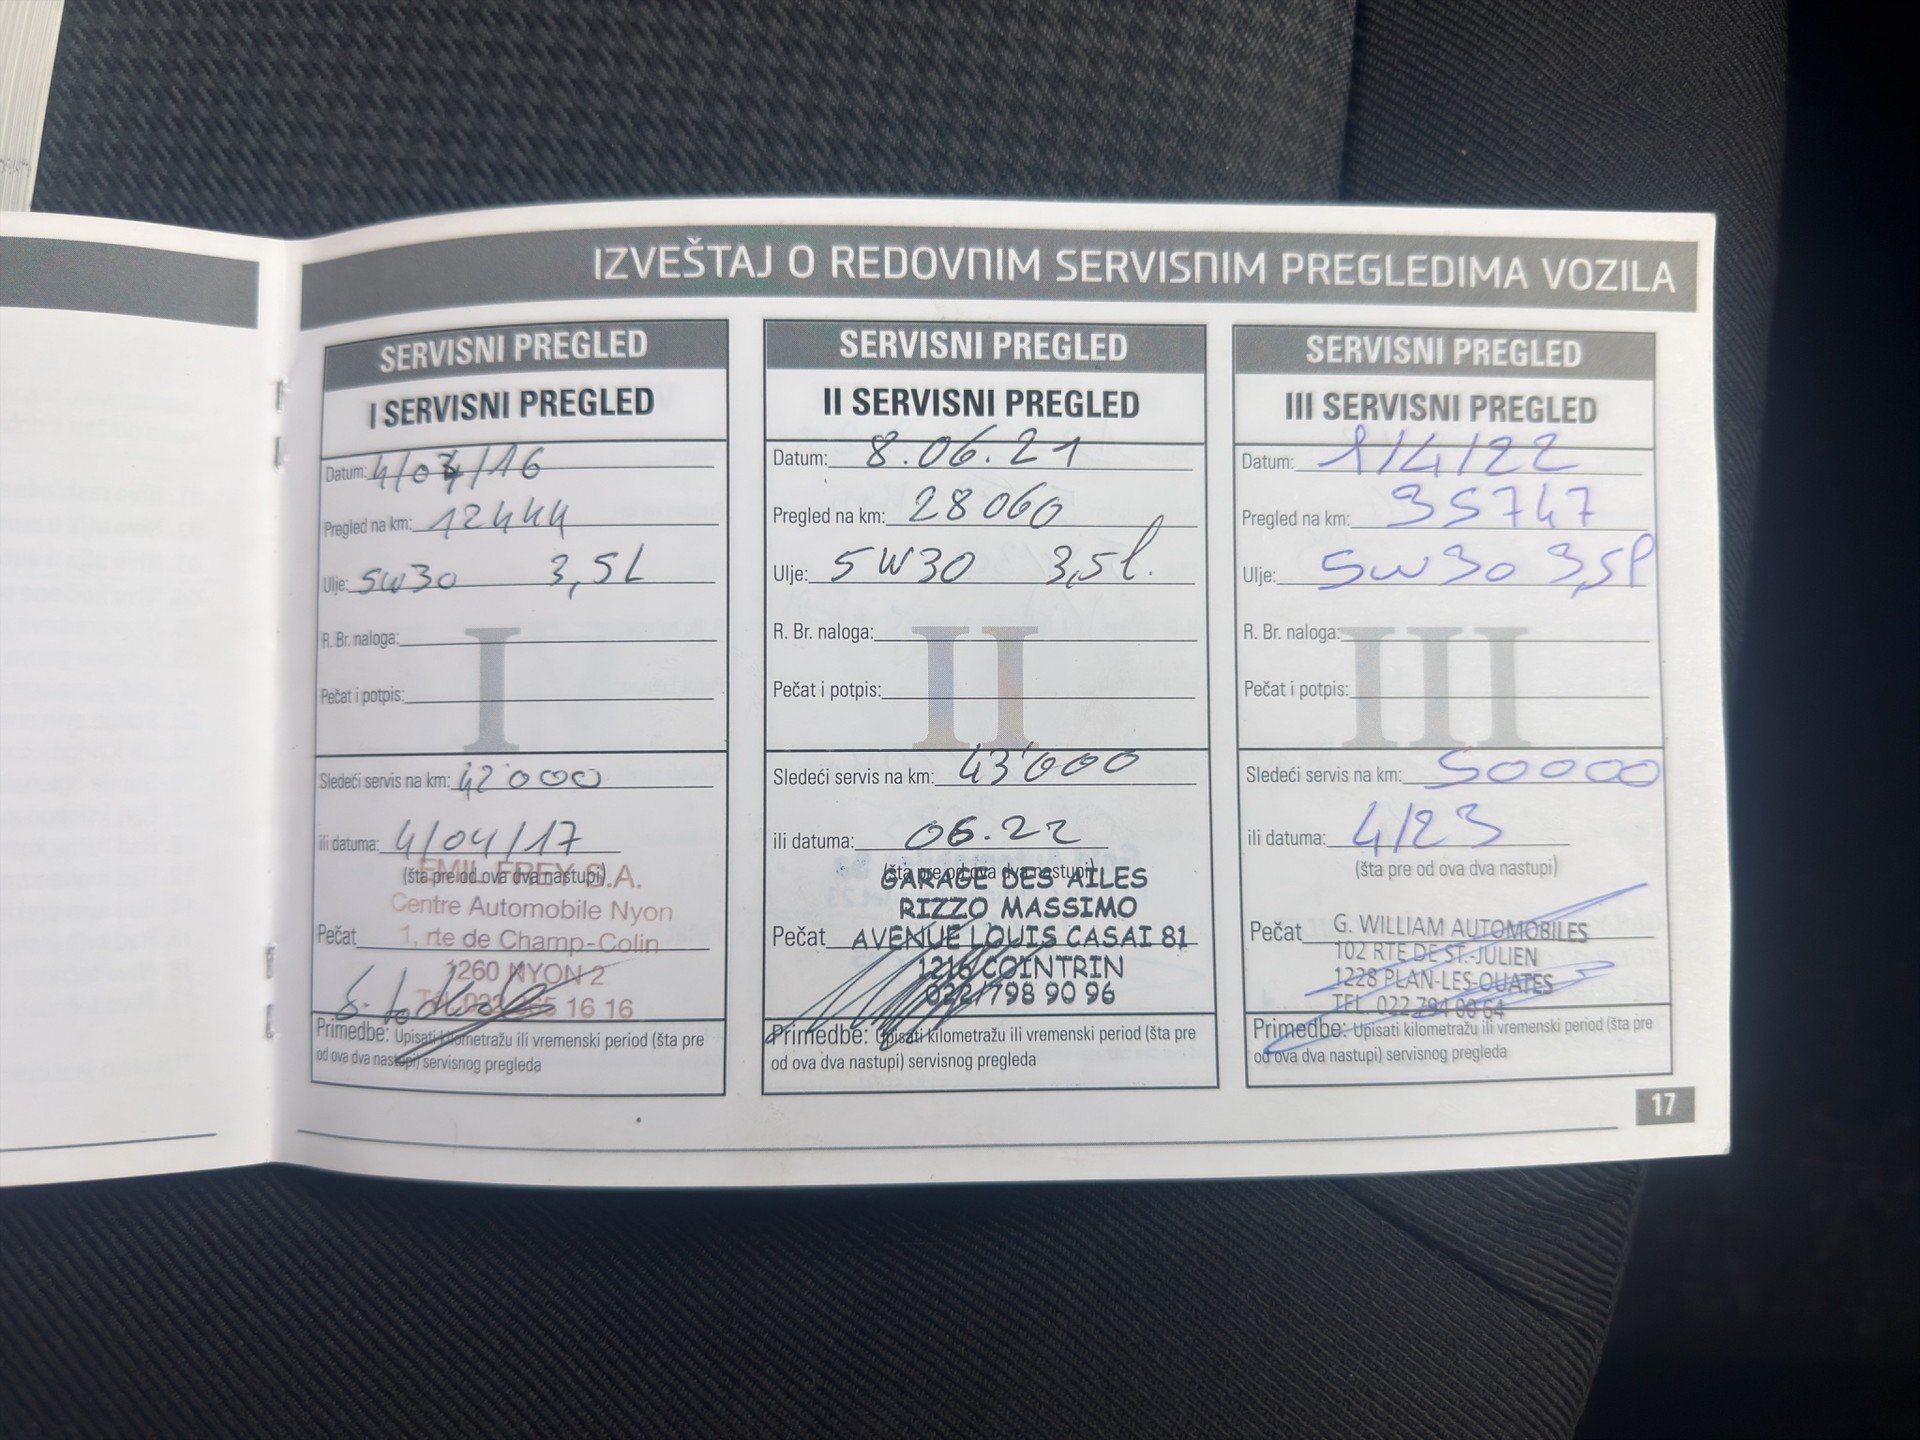 IZVEŠTAJ O REDOVNIM SERVISNIM PREGLEDIMA VOZILA
SERVISNI PREGLED
I SERVISNI PREGLED
Datum: 4/04/16
Pregled na km: 12444
Ulje: 5W30 3,5L
R. Br. naloga:
Pečat i potpis:
I
Sledeći servis na km: 42'000
ili datuma: 4/04/17
(šta pre od ova dva nastupi)
EMIL FREY S.A.
Centre Automobile Nyon
Pečat
1, rte de Champ-Colin
1260 NYON 2
Tél. 022 365 16 16
Primedbe: Upisati kilometražu ili vremenski period (šta pre
od ova dva nastupi) servisnog pregleda
SERVISNI PREGLED
II SERVISNI PREGLED
Datum: 8.06.21
Pregled na km: 28060
Ulje: 5W30 3,5l.
R. Br. naloga:
Pečat i potpis:
II
Sledeći servis na km: 43'000
ili datuma: 06.22
(šta pre od ova dva nastupi)
GARAGE DES AILES
RIZZO MASSIMO
Pečat AVENUE LOUIS CASAI 81
1216 COINTRIN
022/798 90 96
Primedbe: Upisati kilometražu ili vremenski period (šta pre
od ova dva nastupi) servisnog pregleda
SERVISNI PREGLED
III SERVISNI PREGLED
Datum: 1/4/22
Pregled na km: 35747
Ulje: 5W30 3,5l
R. Br. naloga:
Pečat i potpis:
III
Sledeći servis na km: 50000
ili datuma: 4/23
(šta pre od ova dva nastupi)
Pečat G. WILLIAM AUTOMOBILES
102 RTE DE ST.-JULIEN
1228 PLAN-LES-OUATES
TEL. 022 794 00 64
Primedbe: Upisati kilometražu ili vremenski period (šta pre
od ova dva nastupi) servisnog pregleda
17